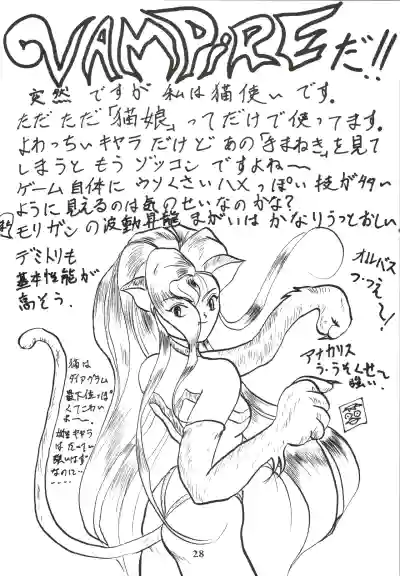 VAMPiREだ!!
突然 ですが 私は猫使い です。
ただ ただ「猫娘」ってだけで使ってます。
よわっちいキャラ だけど あの「まねき」を見て
しまうと もう ゾッコン ですよね〜
ゲーム自体に ウソくさいハメっぽい技が多い
ように見えるのは気のせいなのかな?
モリガンの波動昇龍 まがいは かなりうっとおしい。
デミトリも
基本性能が
高そう.
オルバス
つ・つえ〜!
アナカリス
う・うそくせ〜
猫は
ダイアグラム
最下位っぽ
くてこわい
よ〜.
雌性キャラ
なのに…
28